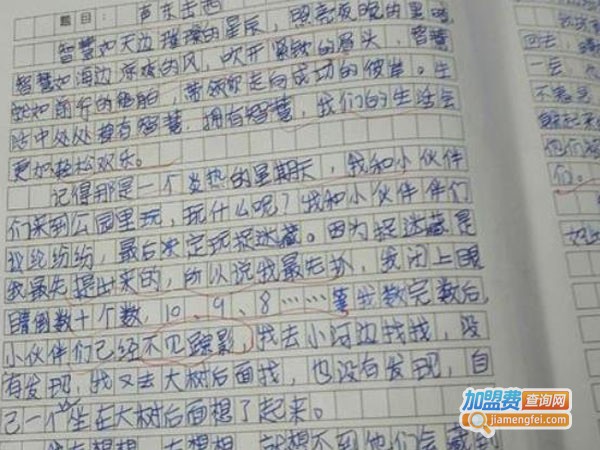 题目：声东击西
智慧如天边璀璨的星辰，照亮夜晚的里程
智慧如海边凉爽的风，吹开紧锁的眉头，智慧
犹如前行的船舶，带领你走向成功的彼岸。生
活中处处皆有智慧，拥有智慧，我们的生活会
更加轻松欢乐。
记得那是一个炎热的星期天，我和小伙伴
们来到公园里玩，玩什么呢？我和小伙伴伴们
议论纷纷，最后决定玩捉迷藏。因为捉迷藏是
我最先提出来的，所以说我最先扮，我闭上眼
睛倒数十个数，10、9、8……等我数完数后，
小伙伴们已经不见踪影，我去小河边找找，没
有发现，我又去大树后面找，也没有发现，自
己一个坐在大树后面想了起来。
想想，
就想不到他们会藏到
回去，
一会，
不
他们
们。
加盟费查询网
jiamengfei.com